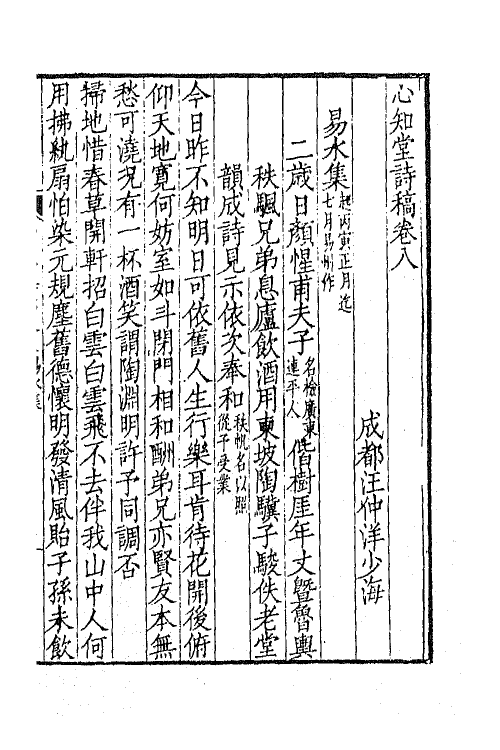 心知堂詩稿卷八
成都汪仲洋少海
易水集起丙寅正月迄七月易州作
二歲日顏惺甫夫子名檢廣東連平人偕樹厓年丈暨魯輿
秩颿兄弟息廬飲酒用東坡陶驥子駿佚老堂
韻成詩見示依次奉和秩帆名以照從予受業
今日昨不知明日可依舊人生行樂耳肯待花開後俯
仰天地寬何妨室如斗閉門相和酬弟兄亦賢友本無
愁可澆況有一杯酒笑謂陶淵明許予同調否
掃地惜春草開軒招白雲白雲飛不去伴我山中人何
用拂紈扇怕染元規塵舊德懷明發清風貽子孫未飲